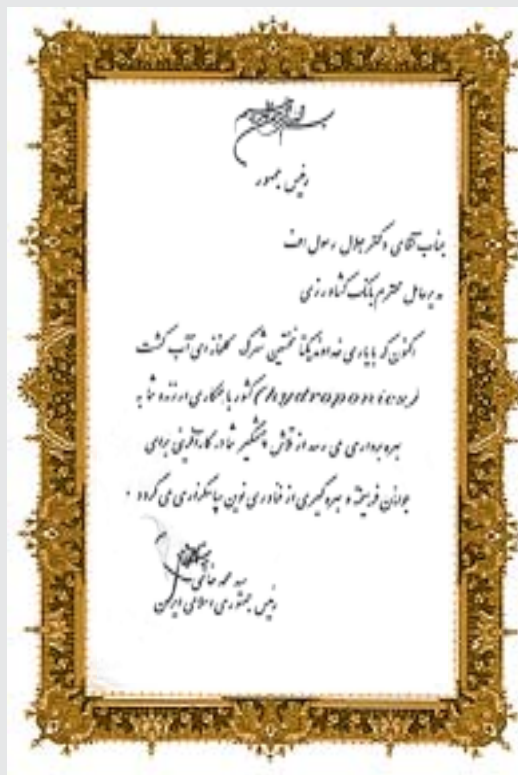 بسم الله الرحمن الرحیم
رئیس جمهور
جناب آقای دکتر جلال رسول اف
مدیرعامل محترم بانک کشاورزی
اکنون که با یاری خداوند یکتا نخستین شهرک گلخانه ای آب کشت
(hydroponics) کشور با همکاری ارزنده شما به
بهره برداری می رسد از تلاش چشمگیر شما در کارآفرینی برای
جوانان فرهیخته و بهره گیری از فناوری نوین سپاسگزاری می گردد .
سید محمد خاتمی
رئیس جمهوری اسلامی ایران